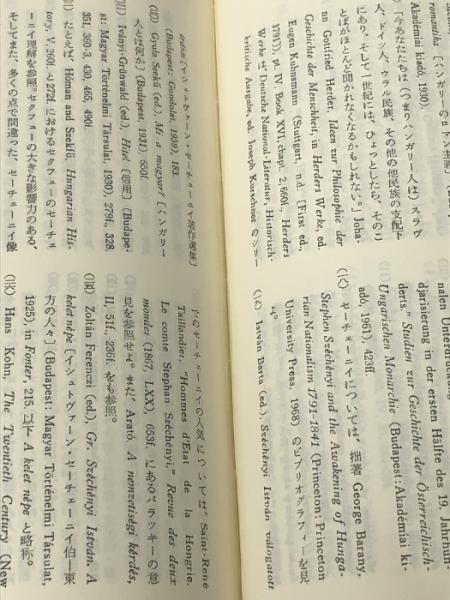 romantika [ハンガリーのロマン主義
Akadémiai kiadó, 1930).
「今あなたたちは(つまりハンガリー人は)スラヴ
人、ドイツ人、ワラル民族、その他の他民族の支配下
にあり、そして一世紀には、ひょっとしたら、そのこ
とばがほとんど聞かれなくなるかもしれない。」Joha-
nn Gottfried Herder, Ideen zur Philosophie der
Geschichte der Menschheit, in Herders Werke, ed.
Eugen Kühnemann (Stuttgart, n.d. [First ed.,
1791]), pt. IV. Book XVI, chapt. 2, 660f., Herders
Werke Deutsche National-Literatur, Historisch-
kritische Ausgabe, ed. Joseph Kürschner のシリー
nalen Unterdrückung
djarisierung in der ersten Hälfte des 19. Jahrhun-
derts," Studien zur Geschichte der Österreichisch-
Ungarischen Monarchie (Budapest: Akadémiai ki-
adó, 1961), 423ff.
セーチェーニイについては、拙著 George Barany,
Stephen Széchenyi and the Awakening of Hunga-
rian Nationalism 1791-1841 (Princeton: Princeton
University Press, 1968) のビブリオグラフィーを見
István Barta (ed.), Széchenyi István válogatott
[イシュトヴァーン・セーチェーニイ著作選集]
(Budapest: Gondolat, 1959), 183.
Gyula Szekfü (ed.), Mi a magyar? [ハンガリー
人とは何か] (Budapest, 1931) 550f.
Iványi-Grünwald (ed.), Hitel [信用] (Budape-
st: Magyar Történelmi Társulat, 1930) 279f., 328,
351, 360-3, 430, 465, 490f.
たとえば、Hóman and Szekfü, Hungarian His-
tory, V, 260f. と 272f. におけるセクフューのセーチェ
ーニイ理解を参照。セクフューの大きな影響力のある、
そしてまた、多くの点で間違った、セーチェーニイ像
セーチェーニイの人気については、Saint-René
Taillandier, "Hommes d'Etat de la Hongrie.
Le comte Stephan Széchenyi," Revue des deux
mondes (1867, LXX), 653f. におけるパラッキーの意
見を参照せよ。また、Arató, A nemzetiségi kérdés,
II, 51f., 236f. をも参照。
Zoltán Ferenczi (ed.), Gr. Széchenyi István. A
kelet népe [イシュトヴァーン・セーチェーニイ伯―東
方の人々] (Budapest: Magyar Történelmi Társulat,
1925), in Fontes, 215. 以下 A kelet népe と略称。
Hans Kohn, The Twentieth Century (New